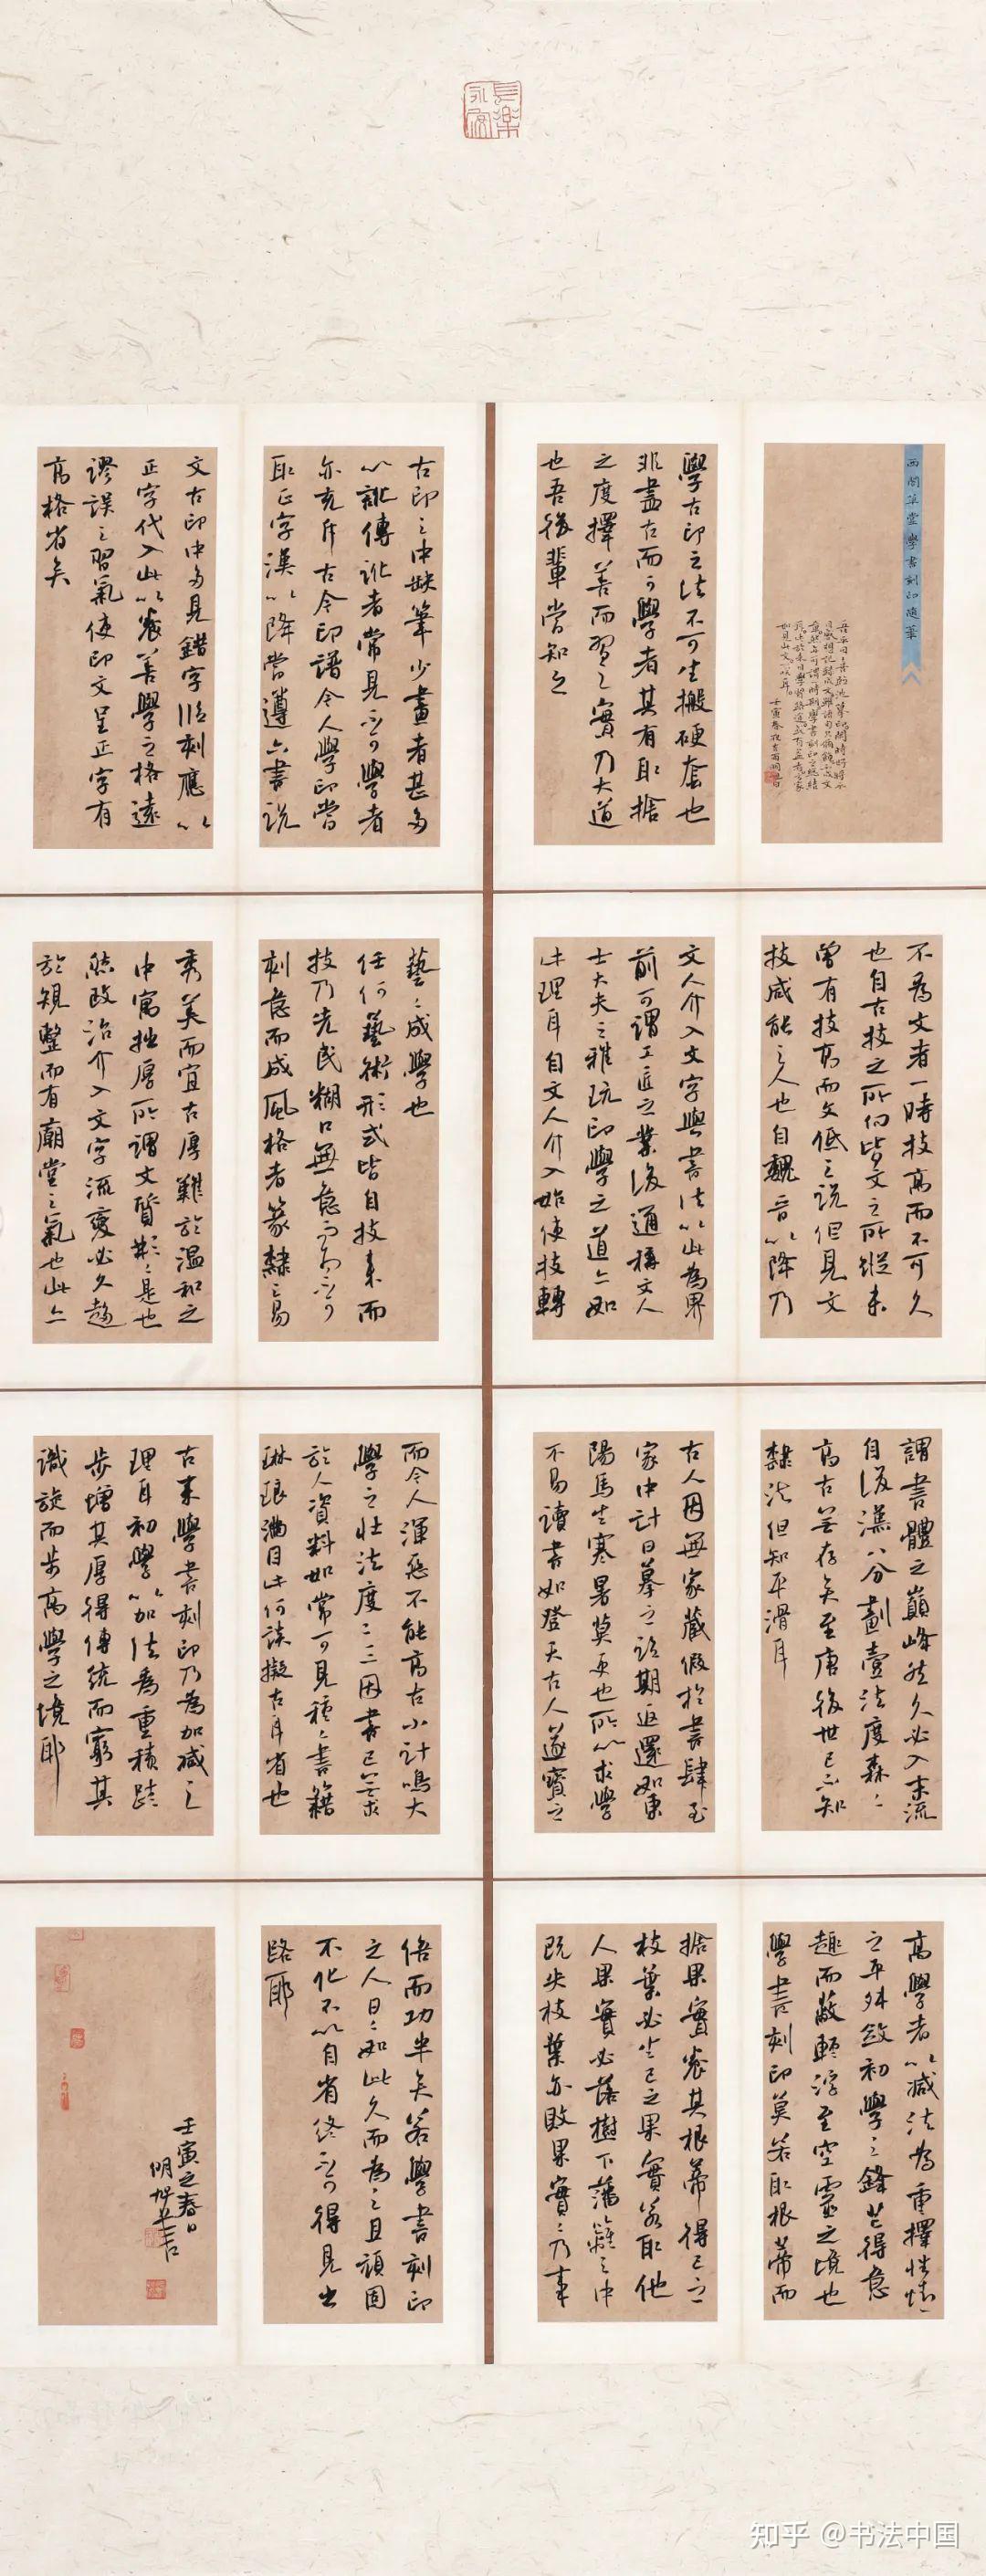 長樂
永安
西閒草堂學書刻印隨筆
學古印之法不可生搬硬套也
非盡古而可學者其有取捨
之度擇善而習之實乃大道
也吾後輩當知之
古印之中缺筆少畫者甚多
以訛傳訛者常見不可學者
亦充斥古今印譜今人學印當
取正字漢以降當遵六書說
文古印中多見錯字臨刻應以
正字代入此以養善學之格遠
謬誤之習氣使印文呈正字有
高格省矣
不為文者一時技高而不可久
也自古技之所仰皆文之所蹤未
曾有技高而文低之說但見文
技咸能之人也自魏晉以降乃
文人介入文字與書法以此為界
前可謂工匠之業後通稱文人
士大夫之雅玩印學之道亦如
此理耳自文人介入始使技轉
藝藝成學也
任何藝術形式皆自技來而
技乃先民糊口無意而為不可
刻意而成風格者篆隸之易
秀美而宜古厚難於溫和之
中寓拙厚所謂文質彬彬是也
然政治介入文字流變必久趨
於規整而有廟堂之氣也此亦
謂書體之巔峰然久必入末流
自後漢八分劃壹法度森森
高古無存矣至唐後世已不知
隸法但知平滑耳
古人因無家藏假於書肆至
家中計日摹之語期返還如東
陽馬生寒暑莫更也所以求學
不易讀書如登天古人遂寶之
而今人渾惡不能高古小計鳴大
學之壯法度二三因書已無求
於人資料如常可見種種書籍
琳琅滿目此何談擬古耳省也
古來學書刻印乃為加減之
理耳初學以加法為重積跬
步增其厚得傳統而窮其
識旋而步高學之境耶
高學者以減法為重擇性情
之平殊斂初學之鋒芒得意
趣而蔽輕浮至空靈之境也
學書刻印莫若取根蒂而
捨果實養其根蒂得己之
枝葉必生己之果實若取他
人果實必落樹下藩籬之中
既失枝葉亦敗果實之乃事
倍而功半矣若學書刻印
之人日日如此久而為之且頑固
不化不以自省終不可得見出
路耶
壬寅之春日
知乎 @书法中国